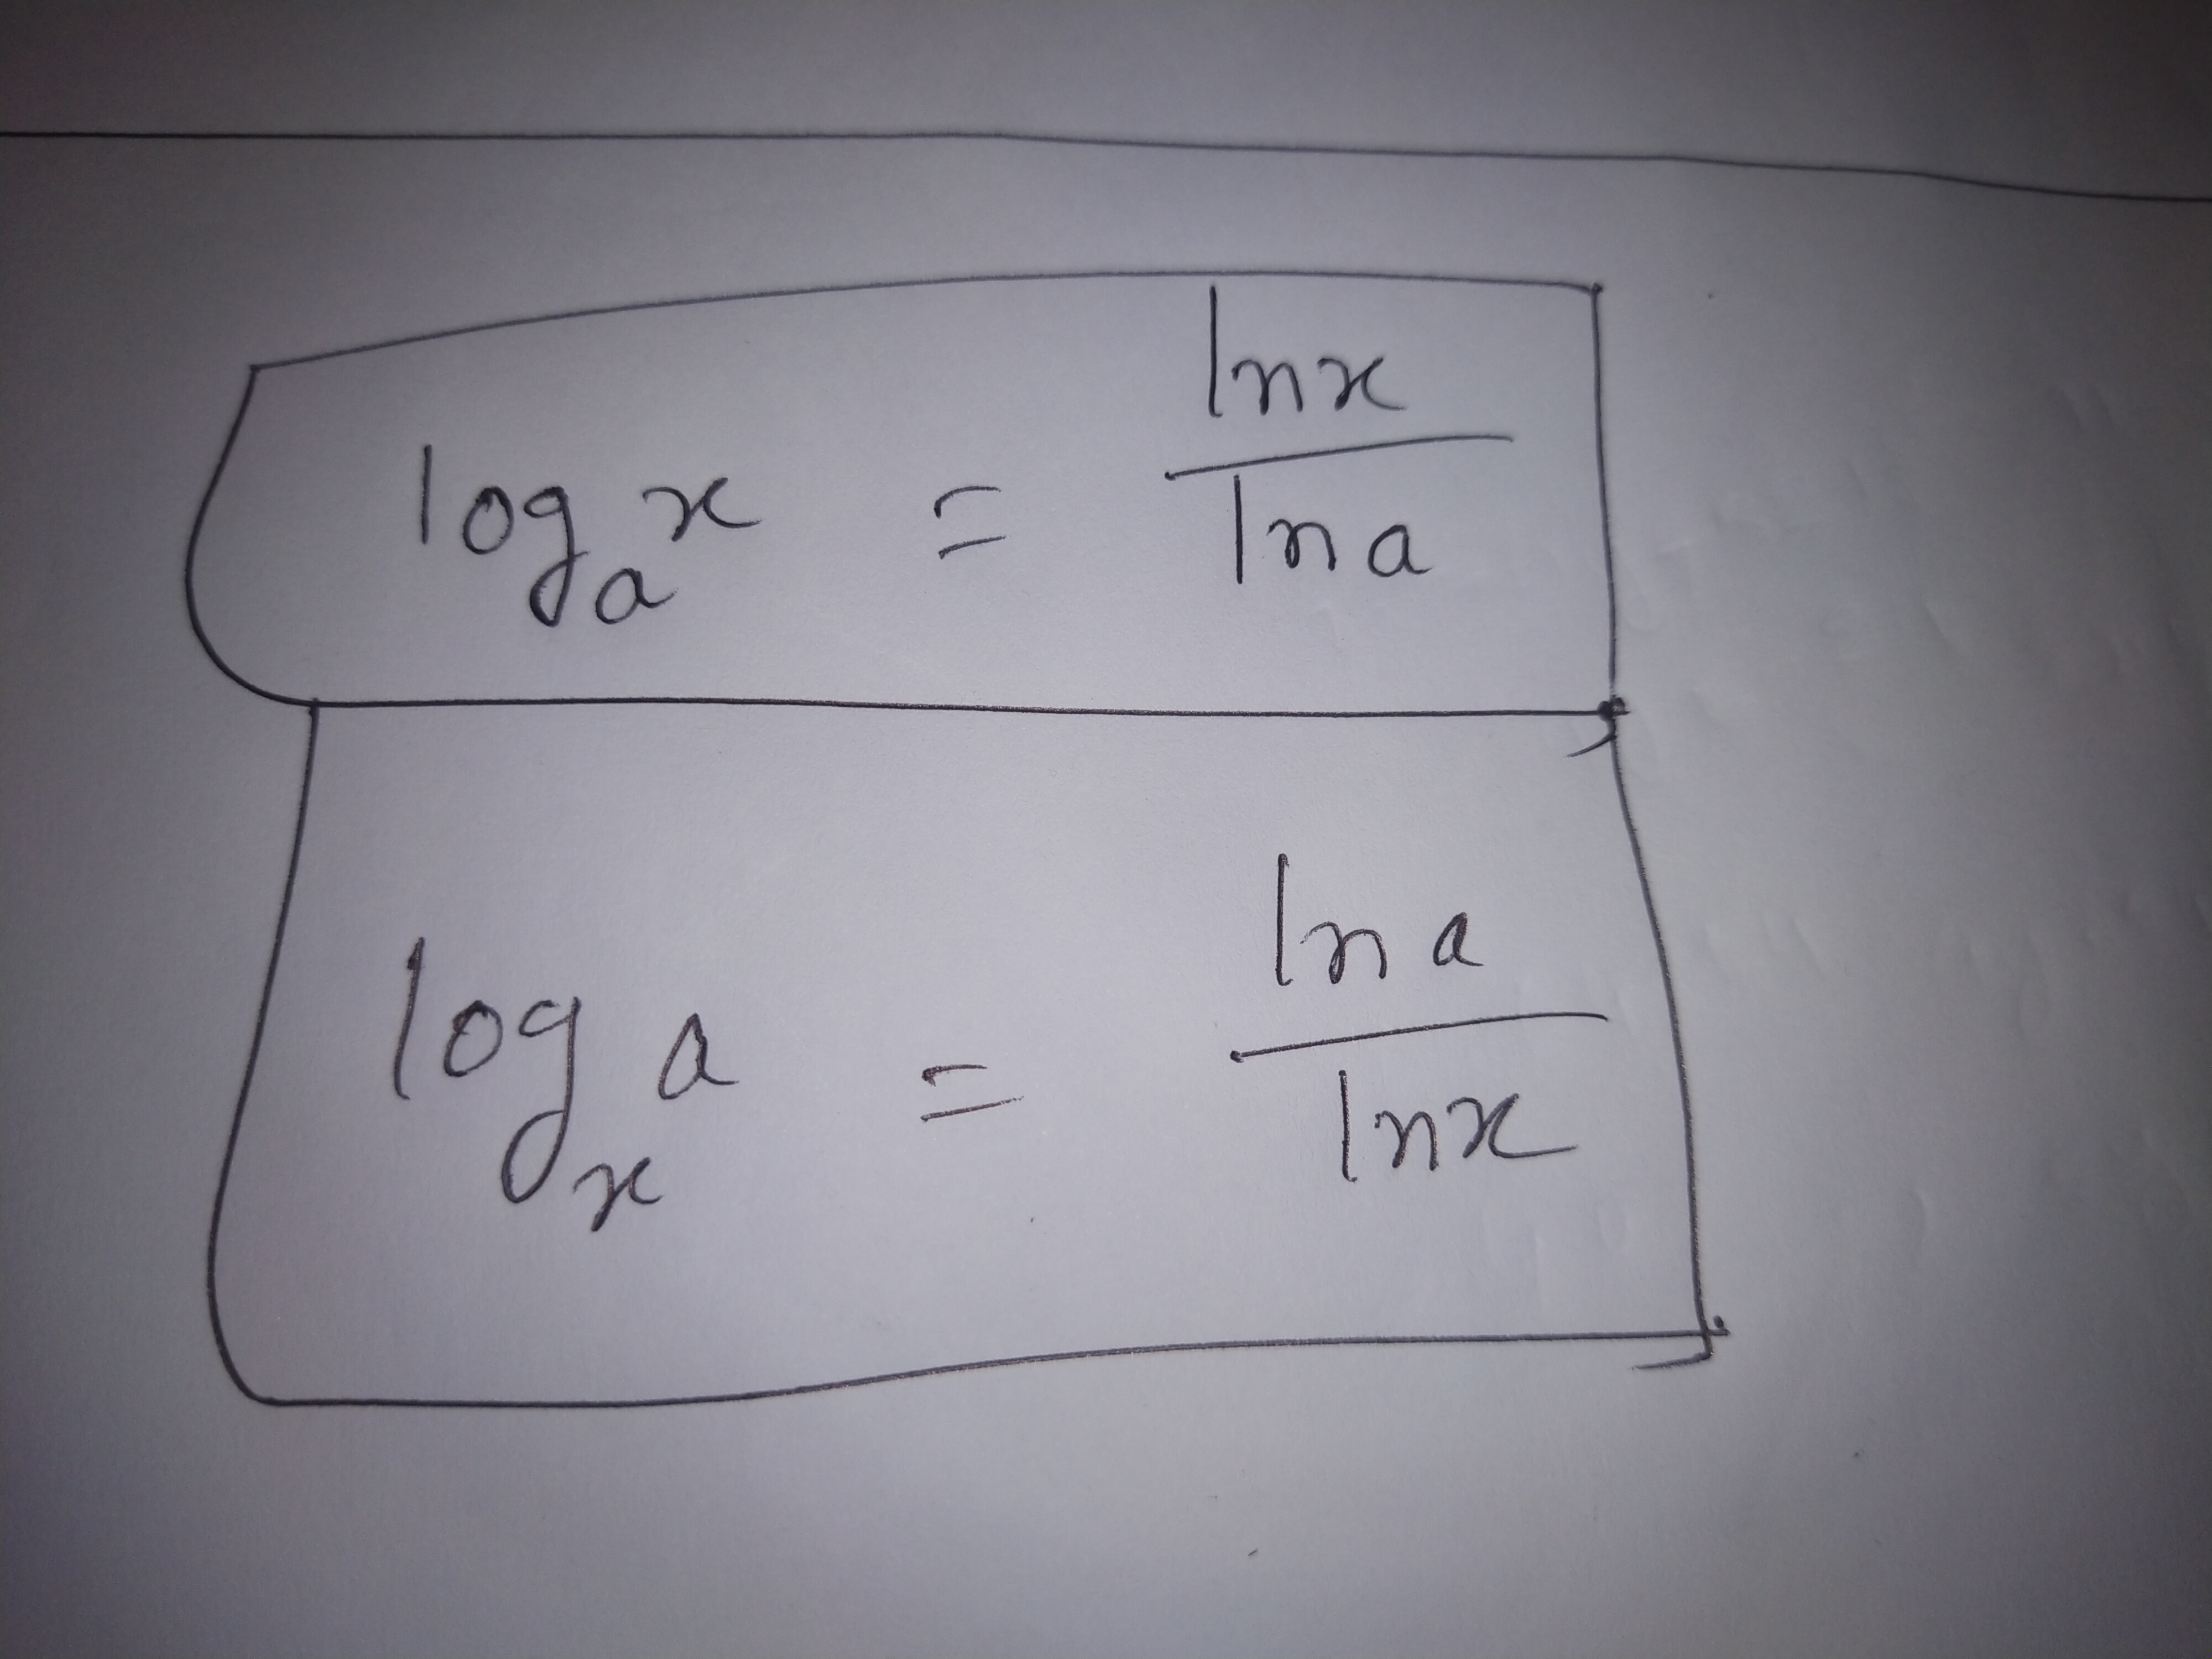 log_a x = ln x / ln a
log_x a = ln a / ln x